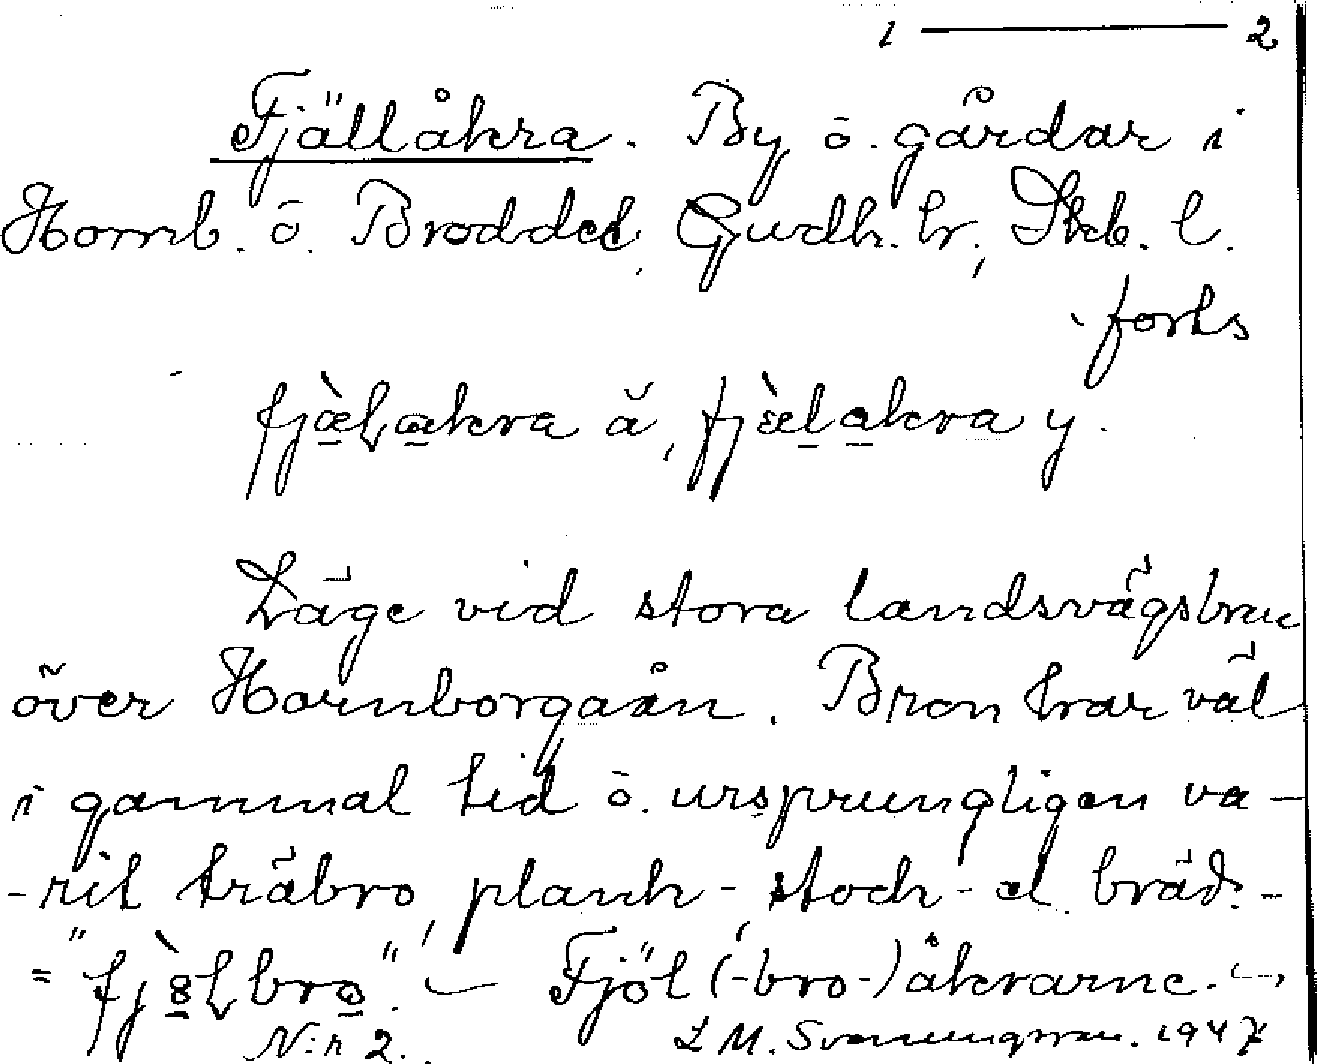 1 — 2
Fjällåkra. By ö. gårdar i
Hornb. ö. Brodded, Gudh. hr, Skb. l.
forts
fjæ̀ɽakra ä, fjæ̀lakra y.
Läge vid stora landsvägsbron
över Hornborgaån. Bron har väl
i gammal tid ö. ursprungligen va-
-rit träbro, plank-, stock- el. bräd.-
= "fjöɽbro". — Fjöl (-bro-) åkrarne. —
N:r 2. L M. Svenungsson. 1947